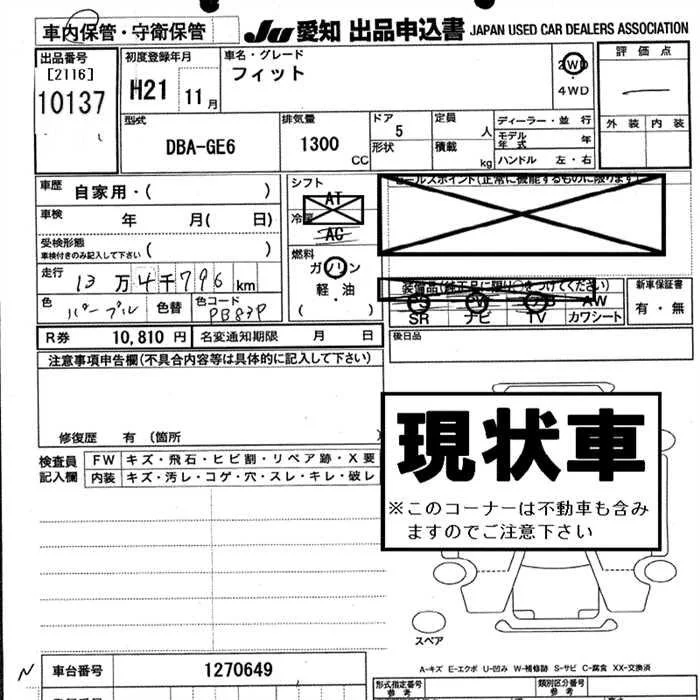 車内保管・守衛保管 JU 愛知 出品申込書 JAPAN USED CAR DEALERS ASSOCIATION
出品番号 初度登録年月 車名・グレード 評価点
[2116] フィット 2WD
10137 H21 11月 ・4WD
型式 排気量 ドア 定員 ディーラー・並行 外装 内装
DBA-GE6 1300 CC 5 人 モデル年式 年
形状 積載 kg ハンドル 左・右
車歴 自家用・( ) シフト セールスポイント(正常に機能するものに限ります)
AT
車検 年 月( 日) 冷房
AC
受検形態 ( )
車検付きのみ記入して下さい
燃料
走行 13万4千796km ガソリン 装備品(純正品に限り○をつけてください) 新車保証書
軽・油 AW 有・無
色 パープル 色替 色コード PB83P ( ) SR ナビ TV カワシート
R券 10,810円 名変通知期限 月 日 後日品
注意事項申告欄(不具合内容等は具体的に記入して下さい)
現状車
修復歴 有 (箇所 )
検査員 FW キズ・飛石・ヒビ割・リペア跡・X要
記入欄 内装 キズ・汚レ・コゲ・穴・スレ・キレ・破レ
※このコーナーは不動車も含み
ますのでご注意下さい
スペア
A-キズ E-エクボ U-凹み W-補修跡 S-サビ C-腐食 XX-交換済
N 車台番号 1270649
形式指定番号 参考 類別区分番号 参考